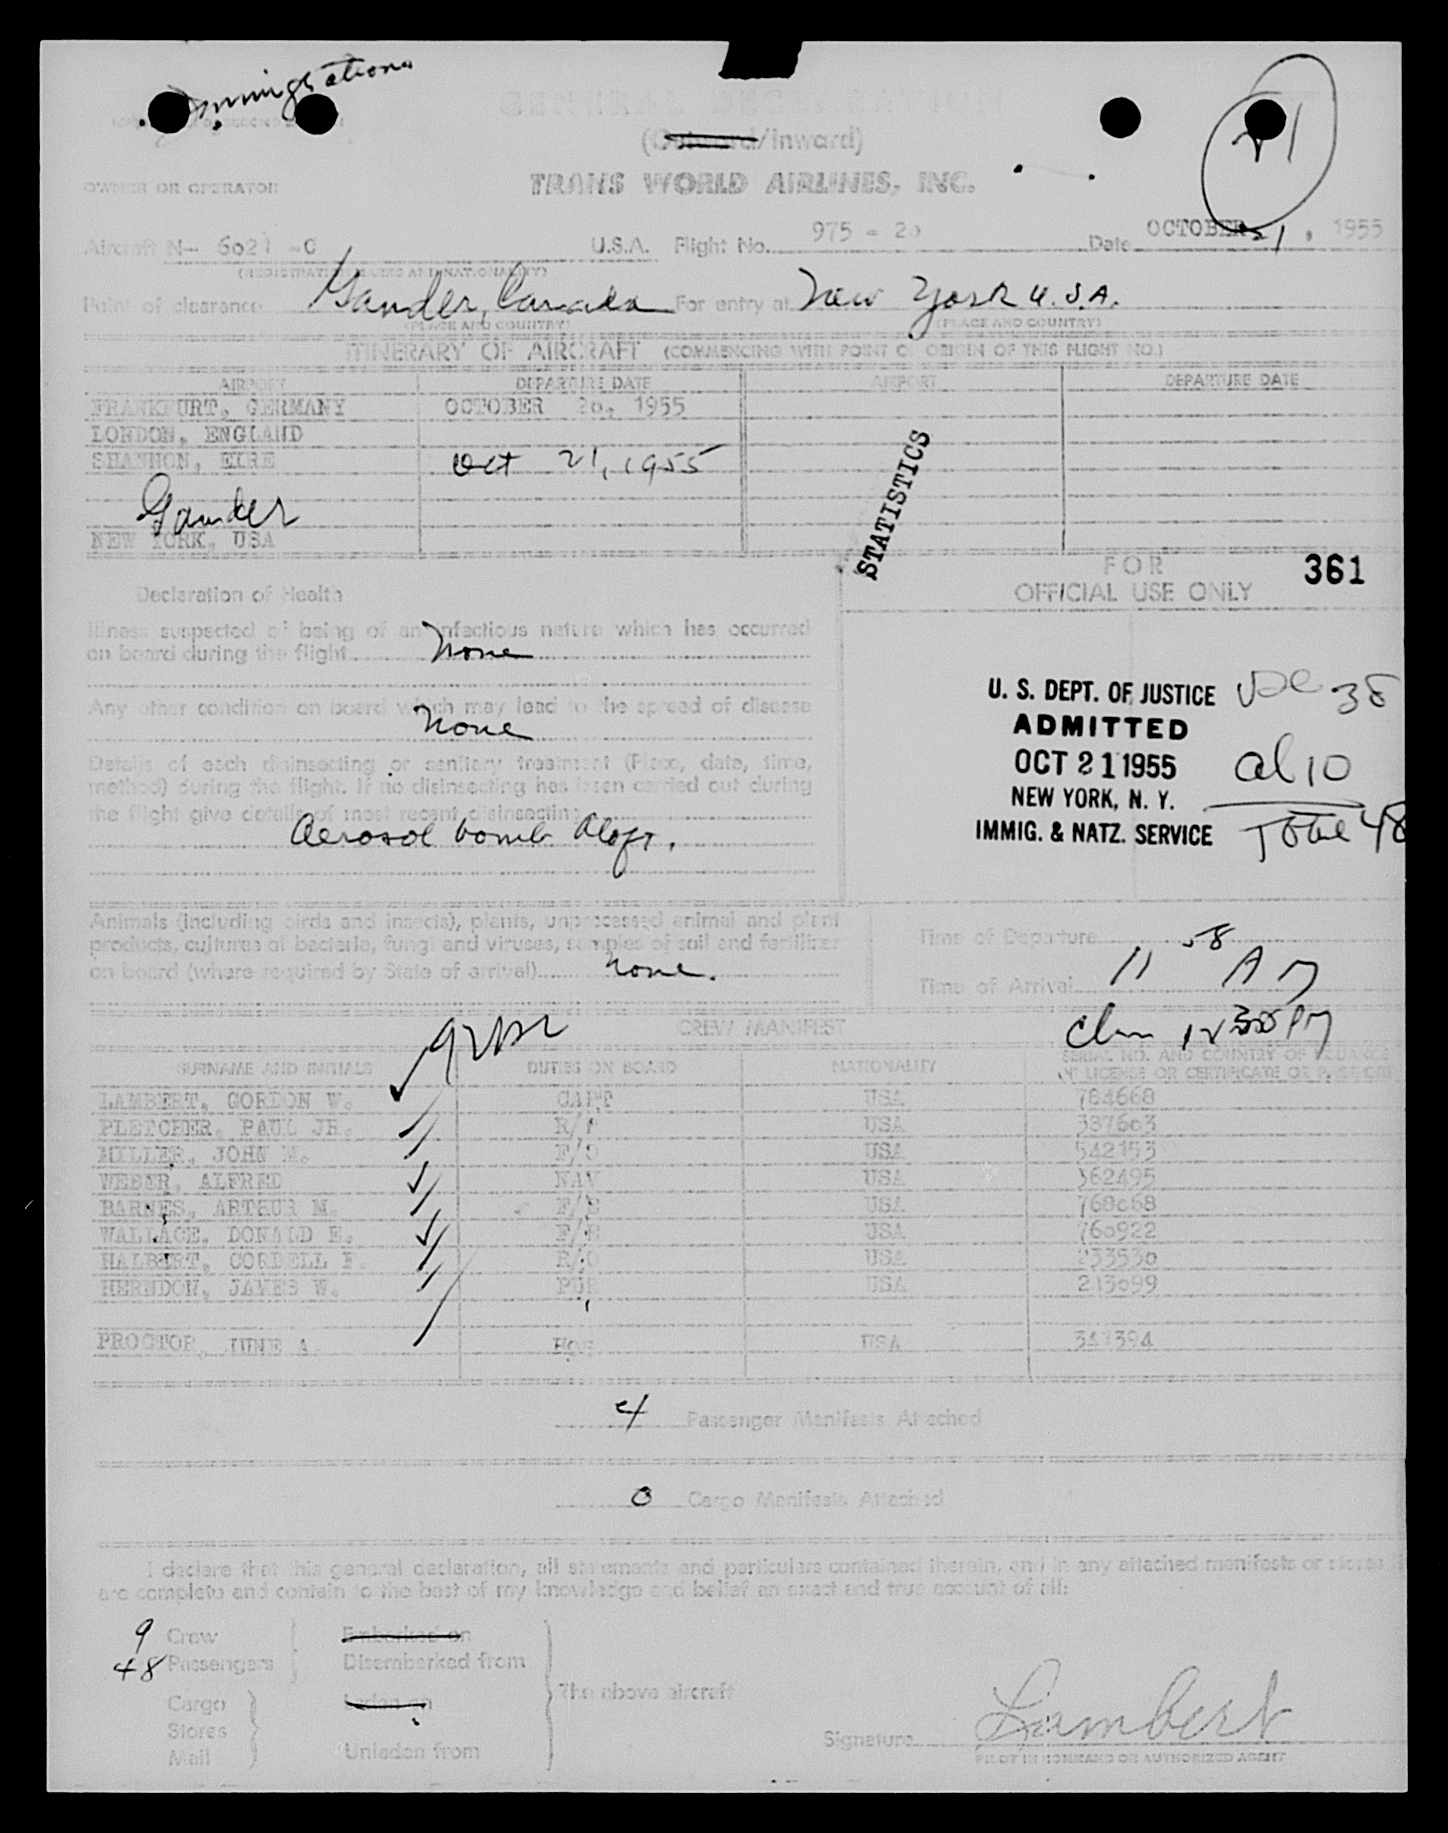 Immigration
21
(Outward/Inward)
OWNER OR OPERATOR TRANS WORLD AIRLINES, INC.
Aircraft N- 6021 -C U.S.A. Flight No. 975 - 20 Date OCTOBER 21, 1955
Point of clearance Gander, Canada For entry at New York U.S.A.
(PLACE AND COUNTRY) (PLACE AND COUNTRY)
ITINERARY OF AIRCRAFT (COMMENCING WITH POINT OF ORIGIN OF THIS FLIGHT NO.)
AIRPORT DEPARTURE DATE AIRPORT DEPARTURE DATE
FRANKFURT, GERMANY OCTOBER 20, 1955
LONDON, ENGLAND
SHANNON, EIRE Oct 21, 1955
Gander
NEW YORK, USA
STATISTICS
FOR
OFFICIAL USE ONLY
361
Declaration of Health
Illness suspected of being of an infectious nature which has occurred
on board during the flight None
Any other condition on board which may lead to the spread of disease
None
Details of each disinsecting or sanitary treatment (Place, date, time,
method) during the flight. If no disinsecting has been carried out during
the flight give details of most recent disinsecting
Aerosol bomb Aloft.
U. S. DEPT. OF JUSTICE
ADMITTED
OCT 21 1955
NEW YORK, N. Y.
IMMIG. & NATZ. SERVICE
38
al 10
Total 48
Animals (including birds and insects), plants, unprocessed animal and plant
products, cultures of bacteria, fungi and viruses, samples of soil and fertilizer
on board (where required by State of arrival) None.
Time of Departure
Time of Arrival 11 58 A M
CREW MANIFEST
SURNAME AND INITIALS DUTIES ON BOARD NATIONALITY SERIAL NO. AND COUNTRY OF ISSUANCE
OF LICENSE OR CERTIFICATE OR PASSPORT
LAMBERT, GORDON W. CAPT USA 784668
PLETCHER, PAUL JR. USA 387603
MILLER, JOHN M. F/O USA 542153
WEBER, ALFRED NAV USA 362495
BARNES, ARTHUR M. F/E USA 768068
WALLACE, DONALD E. F/E USA 760922
HALBERT, CORDELL F. R/O USA 233530
HERNDON, JAMES W. PUR USA 213099
PROCTOR, JUNE A HOS USA 341394
4 Passenger Manifests Attached
0 Cargo Manifests Attached
I declare that this general declaration, all statements and particulars contained therein, and in any attached manifests or stores
are complete and contain to the best of my knowledge and belief an exact and true account of all:
9 Crew Embarked on
48 Passengers Disembarked from
The above aircraft
Cargo Laden on
Stores
Mail Unladen from
Signature Lambert
PILOT IN COMMAND OR AUTHORIZED AGENT